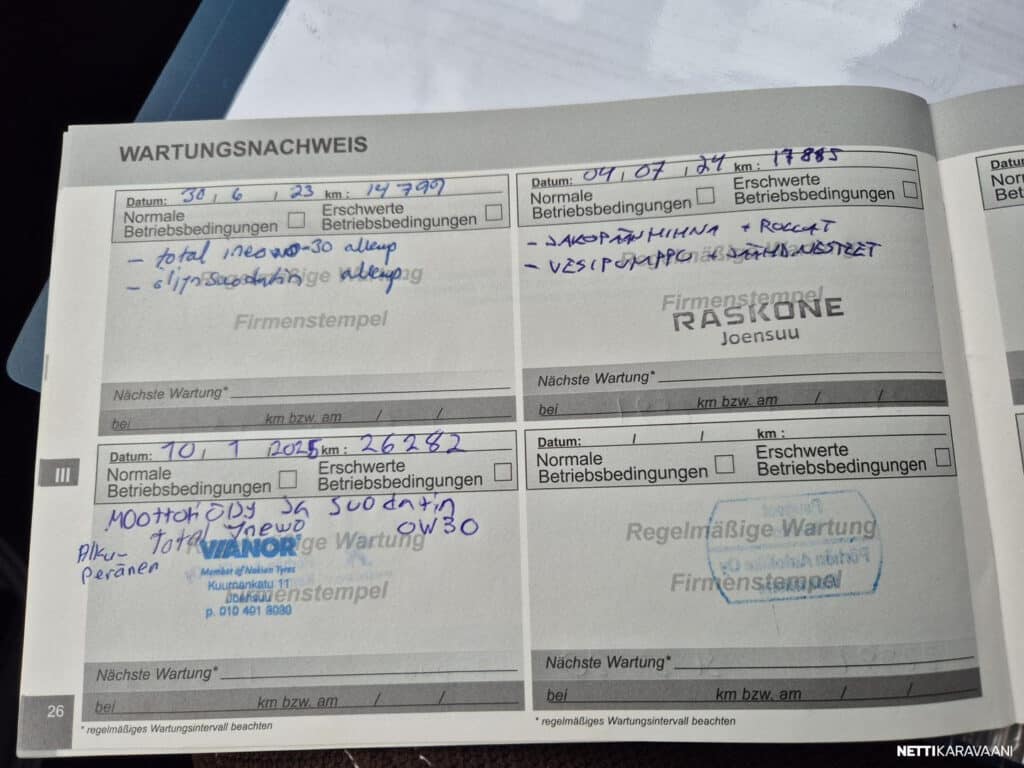 WARTUNGSNACHWEIS
Datum: 30, 6, 23 km: 14799
Normale
Betriebsbedingungen
Erschwerte
Betriebsbedingungen
- total ineo 0-30 alkup
- öljynsuodatin alkup
Regelmäßige Wartung
Firmenstempel
Nächste Wartung*
bei km bzw. am / /
Datum: 04, 07, 24 km: 17885
Normale
Betriebsbedingungen
Erschwerte
Betriebsbedingungen
- JAKOPÄÄNHIHNA + ROLLAT
- VESIPUMPPU + JÄÄHD.NESTEET
Regelmäßige Wartung
Firmenstempel
RASKONE
Joensuu
Nächste Wartung*
bei km bzw. am / /
III
Datum: 10, 1, 2025 km: 26282
Normale
Betriebsbedingungen
Erschwerte
Betriebsbedingungen
Moottoriöljy ja suodatin
Alku- Total Ineo 0W30
peränen
Regelmäßige Wartung
VIANOR
Member of Nokian Tyres
Kuurnankatu 11
Joensuu
p. 010 401 8080
Firmenstempel
Nächste Wartung*
bei km bzw. am / /
* regelmäßiges Wartungsintervall beachten
Datum: / / km:
Normale
Betriebsbedingungen
Erschwerte
Betriebsbedingungen
Regelmäßige Wartung
Firmenstempel
Nächste Wartung*
bei km bzw. am / /
* regelmäßiges Wartungsintervall beachten
26
NETTIKARAVAANI